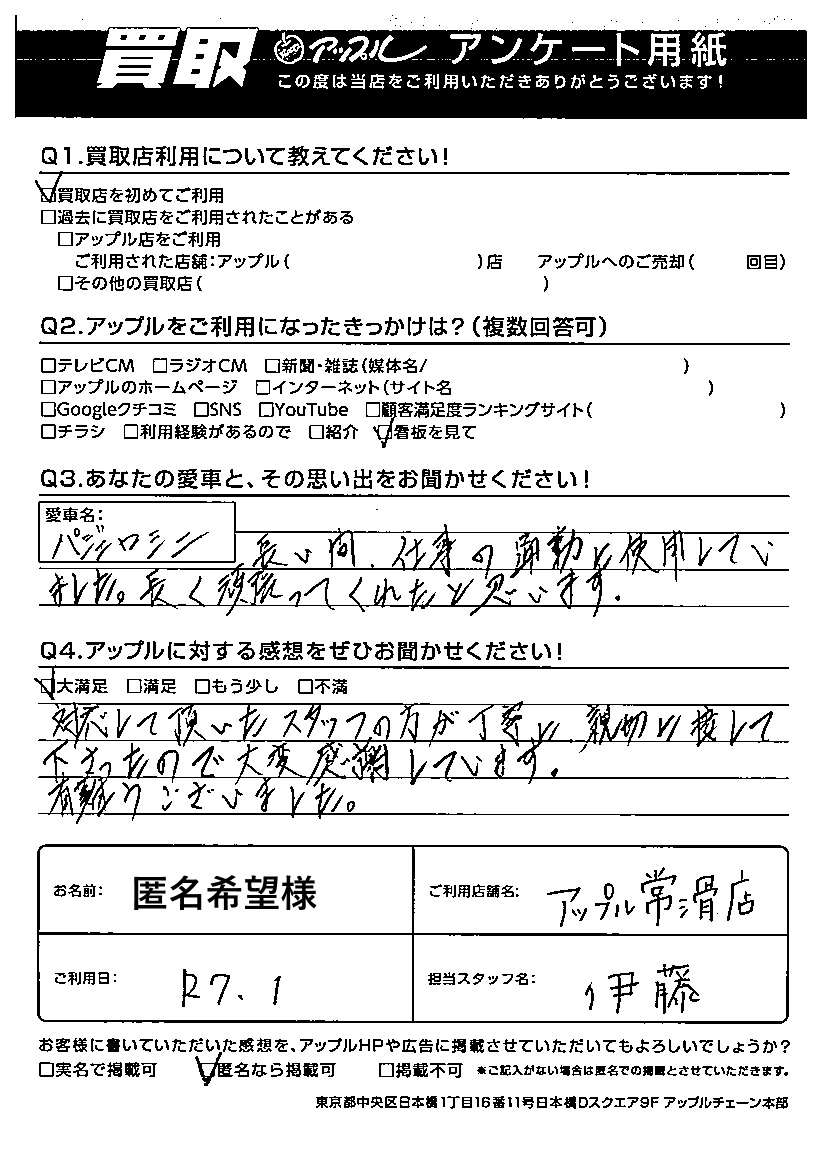 買取 アップル アンケート用紙
この度は当店をご利用いただきありがとうございます!
Q1.買取店利用について教えてください!
☑買取店を初めてご利用
□過去に買取店をご利用されたことがある
□アップル店をご利用
ご利用された店舗:アップル( )店 アップルへのご売却( 回目)
□その他の買取店( )
Q2.アップルをご利用になったきっかけは?(複数回答可)
□テレビCM □ラジオCM □新聞・雑誌(媒体名/ )
□アップルのホームページ □インターネット(サイト名 )
□Googleクチコミ □SNS □YouTube □顧客満足度ランキングサイト( )
□チラシ □利用経験があるので □紹介 ☑看板を見て
Q3.あなたの愛車と、その思い出をお聞かせください!
愛車名:
パジェロミニ 長い間、仕事の通勤に使用してい
ました。長く頑張ってくれたと思います。
Q4.アップルに対する感想をぜひお聞かせください!
☑大満足 □満足 □もう少し □不満
対応して頂いたスタッフの方が丁寧に、親切に接して
下さったので大変感謝しています。
有難うございました。
お名前: 匿名希望様 ご利用店舗名: アップル常滑店
ご利用日: R7.1 担当スタッフ名: 伊藤
お客様に書いていただいた感想を、アップルHPや広告に掲載させていただいてもよろしいでしょうか?
□実名で掲載可 ☑匿名なら掲載可 □掲載不可 *ご記入がない場合は匿名での掲載とさせていただきます。
東京都中央区日本橋1丁目16番11号日本橋Dスクエア9F アップルチェーン本部